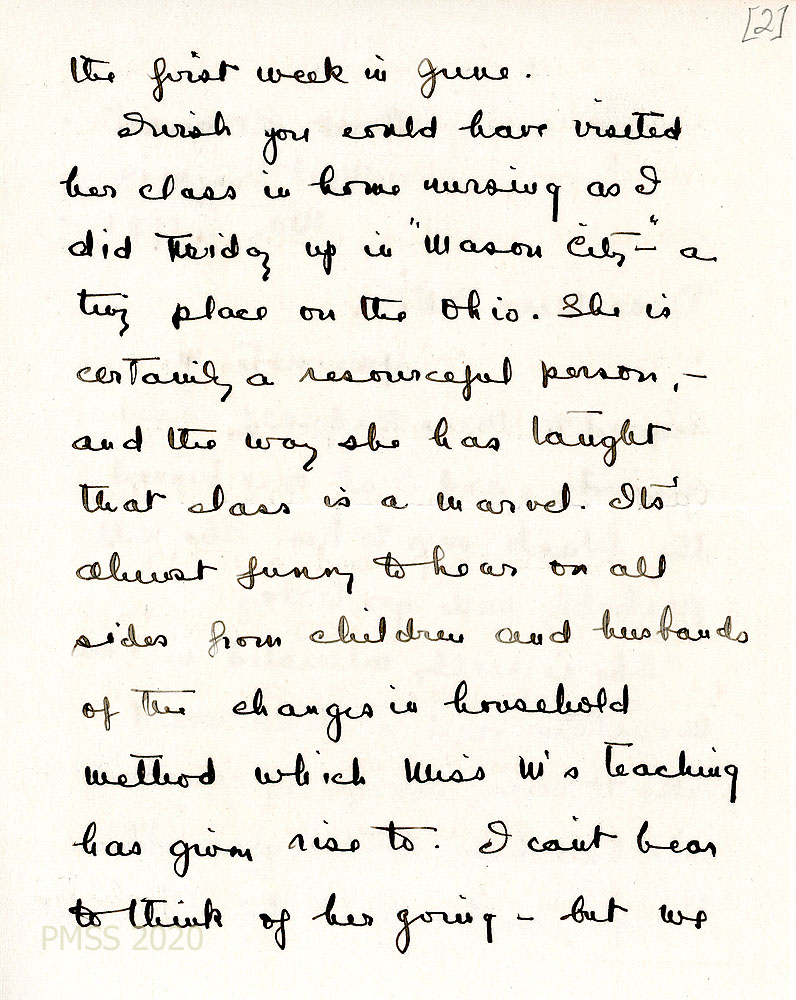 [2]
the first week in June.
I wish you could have visited
her class in home nursing as I
did Friday up in "Mason City-" a
tiny place on the Ohio. She is
certainly a resourceful person, -
and the way she has taught
that class is a marvel. Its'
almost funny to hear on all
sides from children and husbands
of the changes in household
method which Miss M's teaching
has given rise to. I can't bear
to think of her going - but we
PMSS 2020